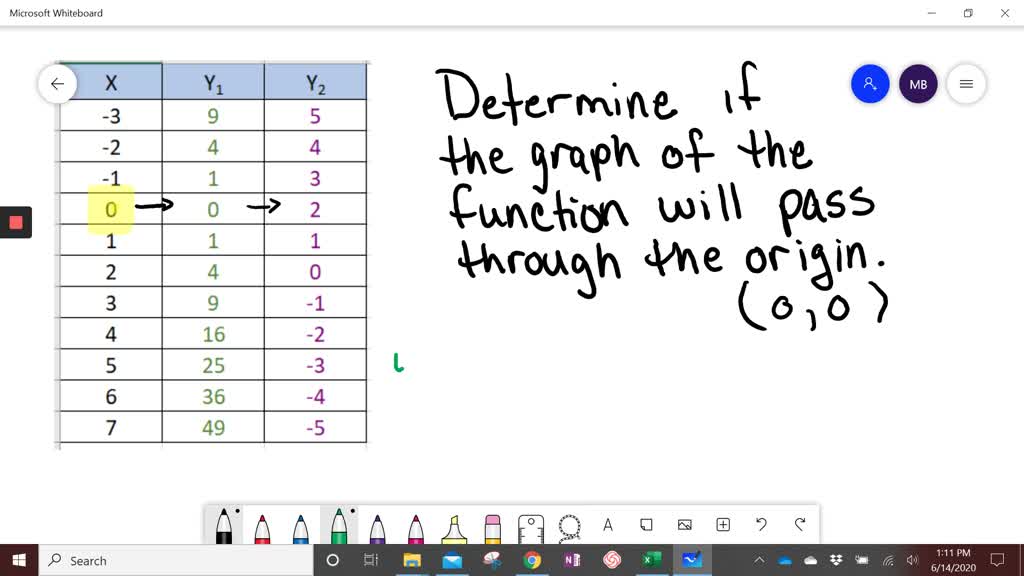 Microsoft Whiteboard
X Y1 Y2
-3 9 5
-2 4 4
-1 1 3
0 0 2
1 1 1
2 4 0
3 9 -1
4 16 -2
5 25 -3
6 36 -4
7 49 -5
Determine if
the graph of the
function will pass
through the origin.
(0,0)
MB
A
Search
1:11 PM
6/14/2020